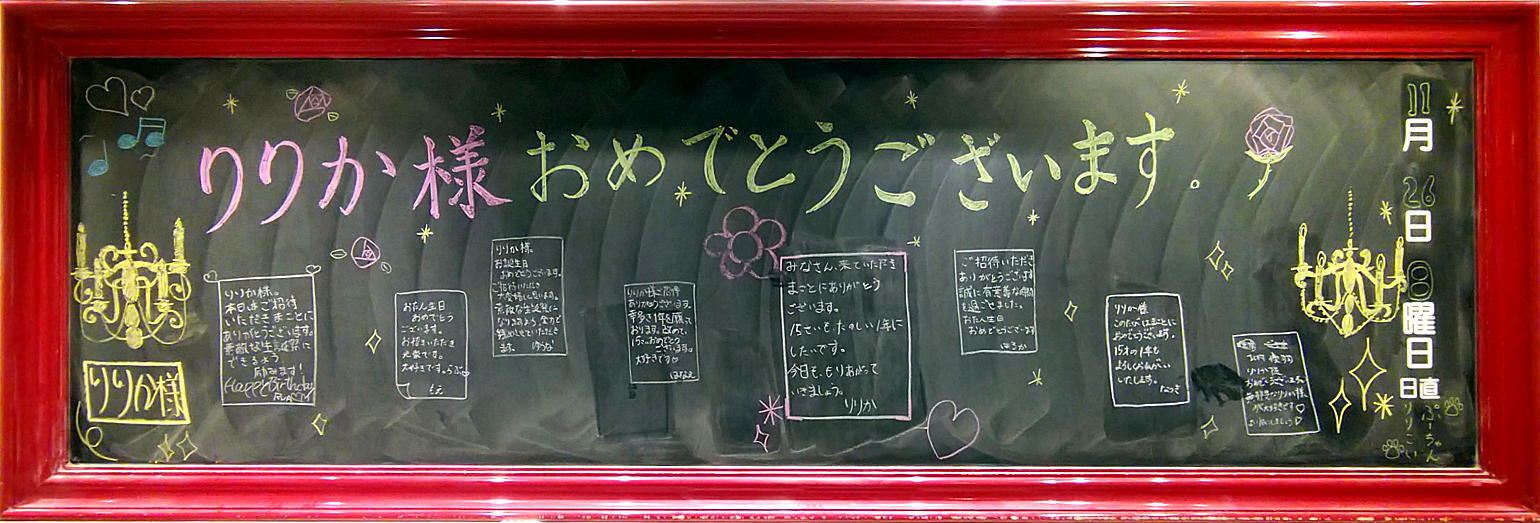 りりか様 おめでとうございます。
11月26日日曜日
日直
ぷーちゃん
りりこい
りりか様。
本日はご招待
いただきまことに
ありがとうございます。
素敵な生誕祭に
できるよう
励みます!
Happy Birthday
りりか様
おたん生日
おめでとう
ございます。
お招きいただき
光栄です。
大好きです。らぶ♡
もえ
りりか様。
お誕生日
おめでとうございます。
ご招待いただき
大変嬉しく思います。
素敵な生誕祭に
なりますよう、全力で
ます。
りりか様ご招待
ありがとうございます。
幸多き1年を願って
おります。改めて、
15さいおめでとう
ございます。
大好きです♡
はなえ
みなさん、来ていただき
まことにありがとう
ございます。
15さいも、たのしい1年に
したいです。
今日も、もりあがって
いきましょう。
りりか
ご招待いただき
ありがとうございます
誠に有意義な時間
を過ごとました。
おたん生日
おめでとうございます
はるか
りりか様
このたびはまことに
おめでとうございます。
15才の1年も
よろしくおねがい
いたします。
なつき
りりか様
おめでとうございます